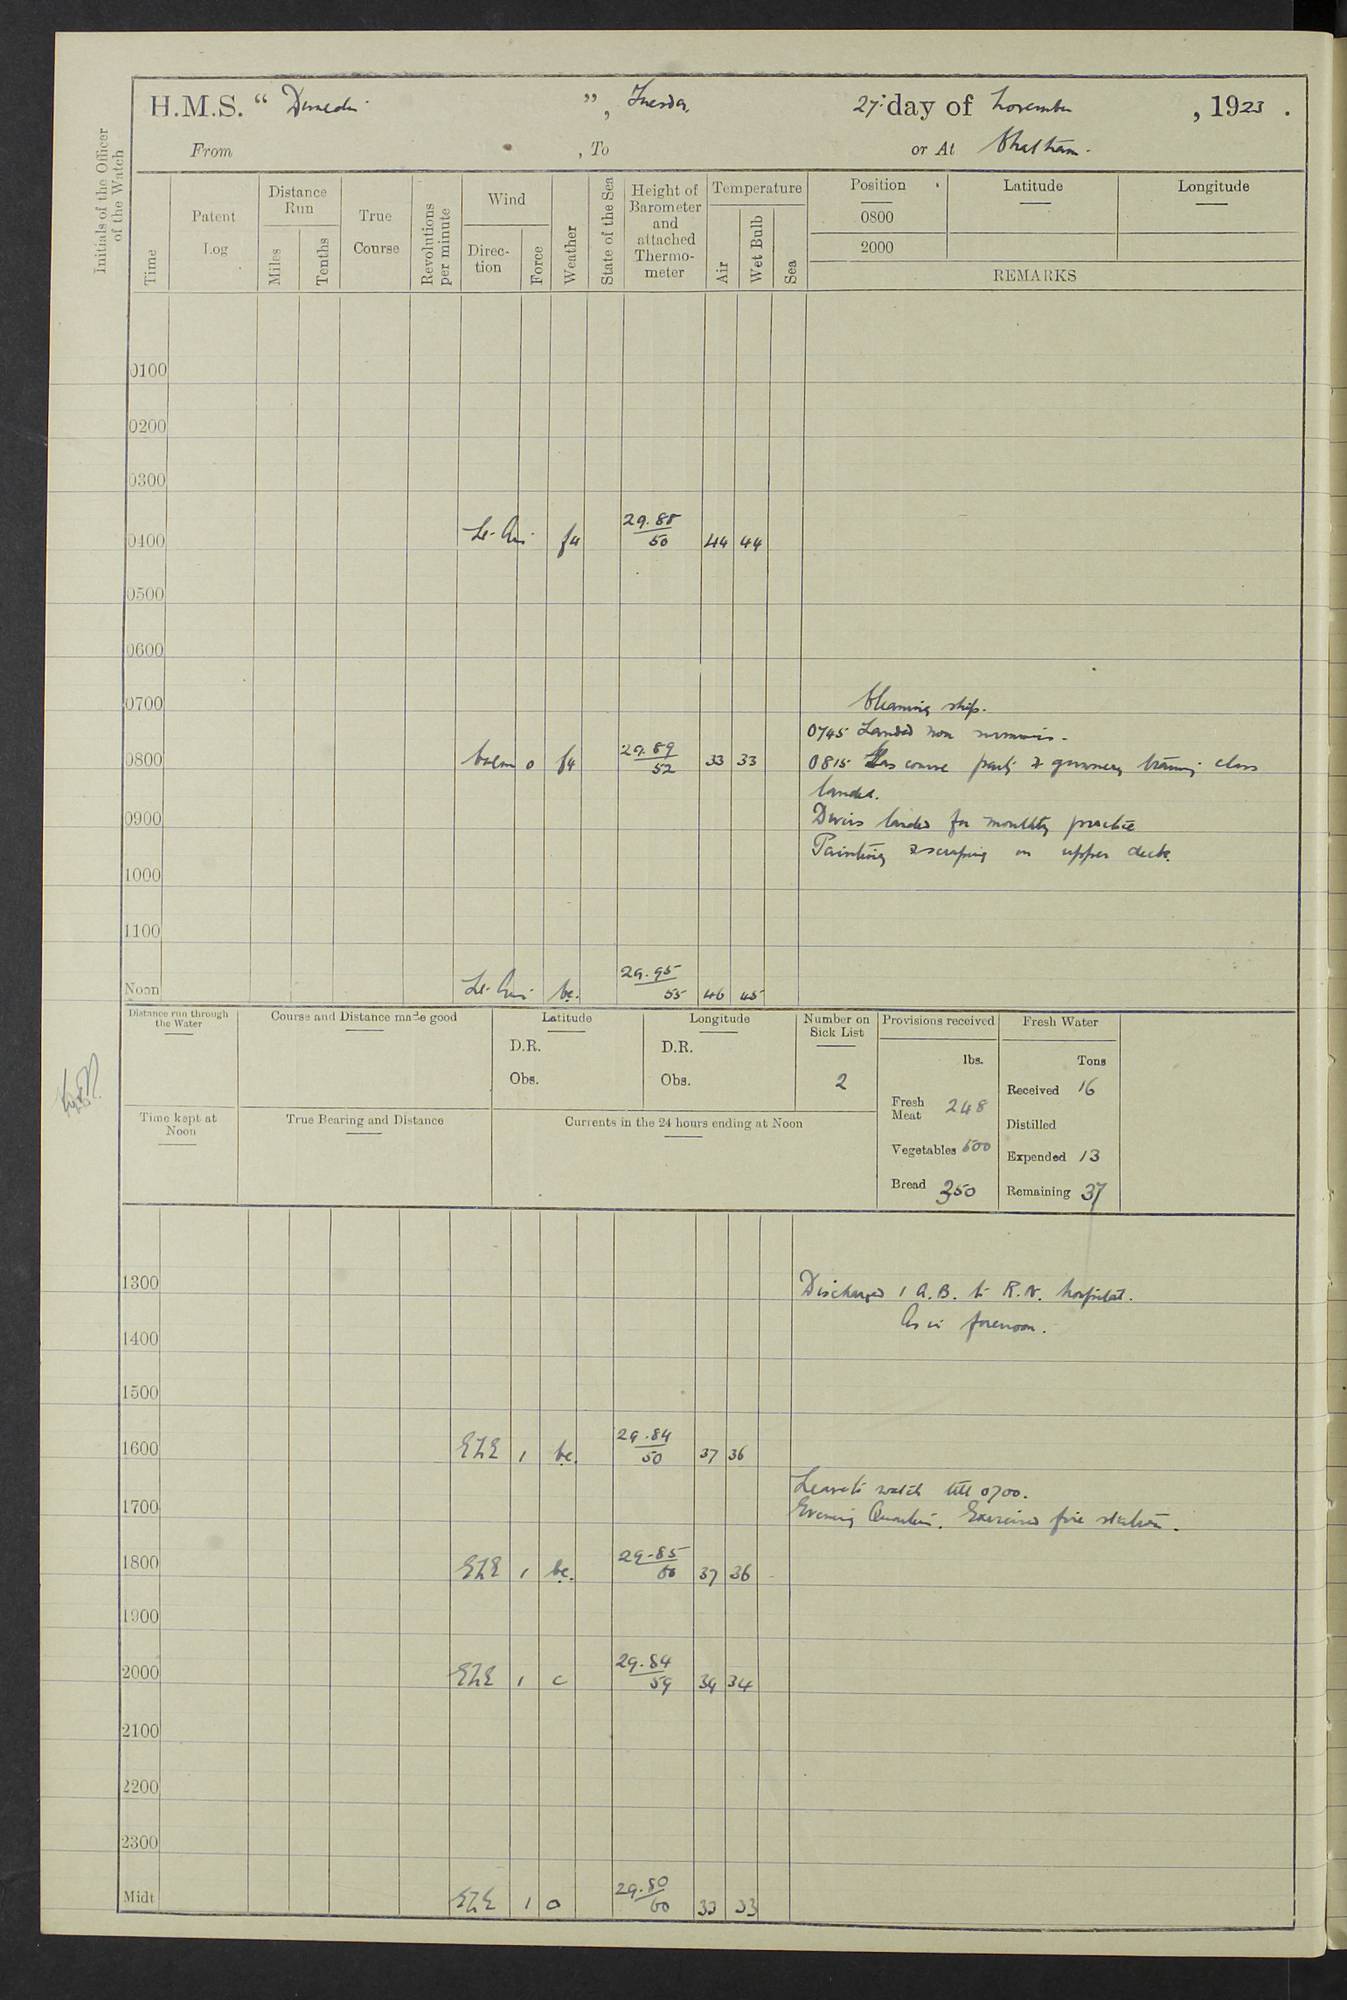 H.M.S. “ Dunedin ”, Tuesday, 27th day of November , 1923 .
From , To or At Chatham.
Initials of the Officer of the Watch
Time
Patent Log
Distance Run
Miles
Tenths
True Course
Revolutions per minute
Wind
Direc-tion
Force
Weather
State of the Sea
Height of Barometer and attached Thermo-meter
Temperature
Air
Wet Bulb
Sea
Position
0800
2000
Latitude
Longitude
REMARKS
0100
0200
0300
0400 Lt. Airs f4 29.88 50 44 44
0500
0600
0700 Cleaning ship.
0745 Landed non swimmers.
0800 Calm 0 f4 29.89 52 33 33
0815 Gas course party & gunnery training class
landed.
0900 Divers landed for monthly practice
Painting & scraping on upper deck.
1000
1100
Noon Lt. Airs bc. 29.95 55 46 45
Distance run through the Water
Course and Distance made good
Latitude
D.R.
Obs.
Longitude
D.R.
Obs.
Number on Sick List
2
Provisions received
lbs.
Fresh Meat 248
Vegetables 500
Bread 350
Fresh Water
Tons
Received 16
Distilled
Expended 13
Remaining 37
Time kept at Noon
True Bearing and Distance
Currents in the 24 hours ending at Noon
1300 Discharged 1 A.B. to R.N. hospital.
As in forenoon.
1400
1500
1600 ENE 1 bc. 29.84 50 37 36
Leave to watch till 0700.
1700 Evening Quarters. Exercised fire stations.
1800 ENE 1 bc. 29.85 60 37 36
1900
2000 ENE 1 c 29.84 59 34
2100
2200
2300
Midt ENE 1 o 29.80 60 33 33